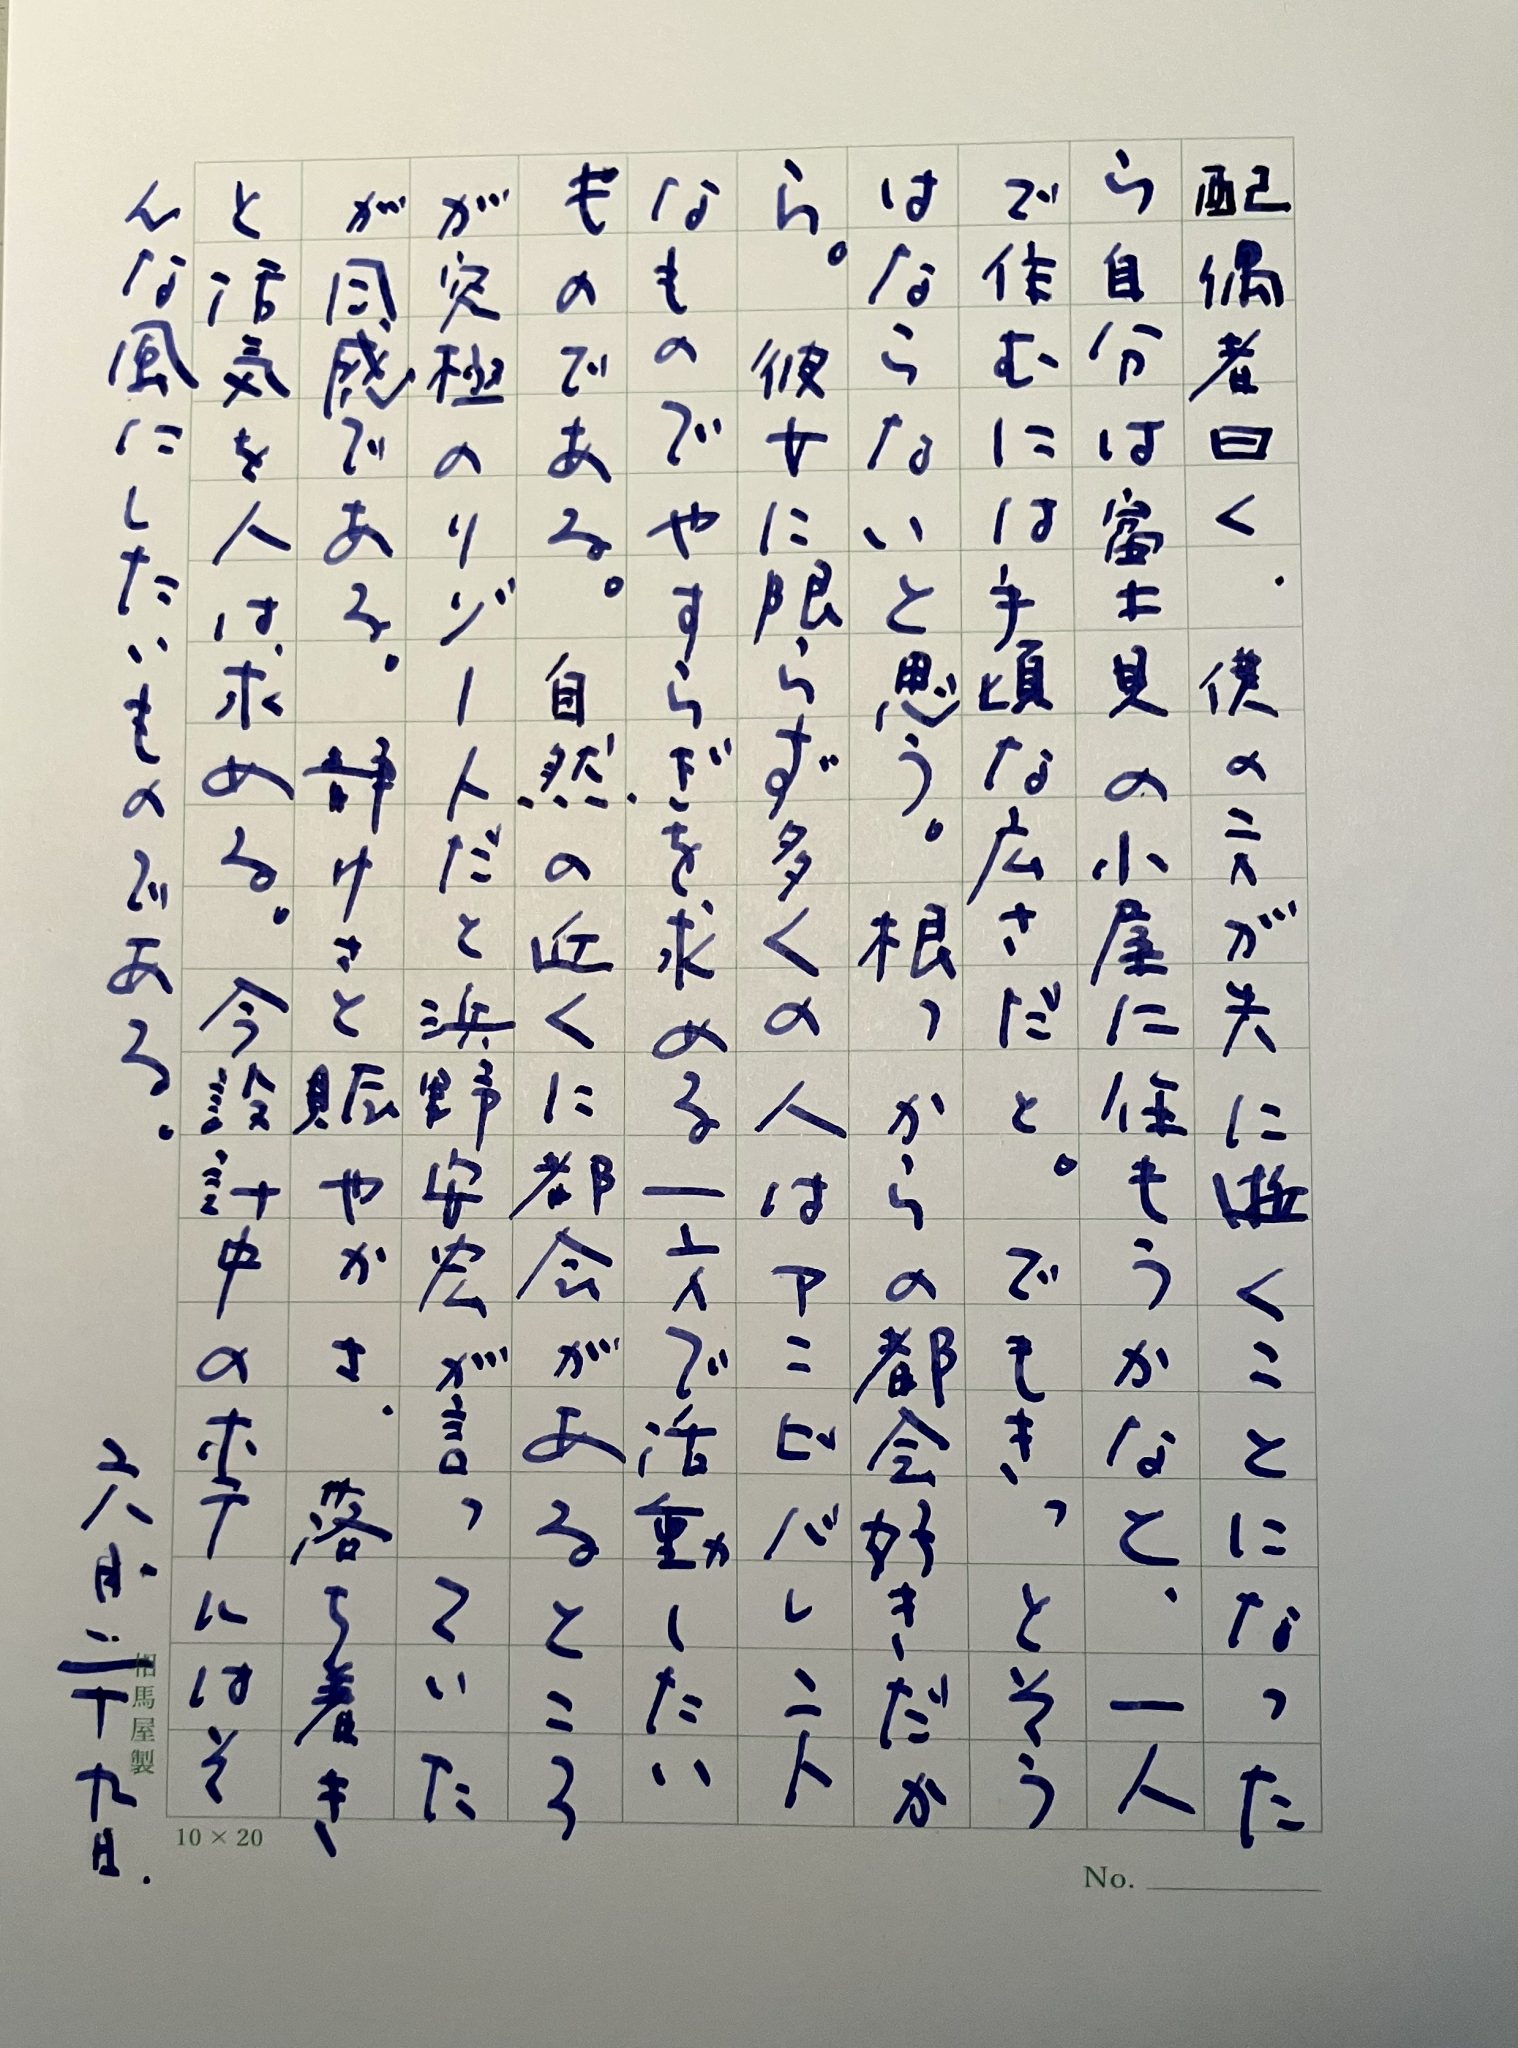 配偶者曰く、僕の方が先に逝くことになった
ら自分は富士見の小屋に住もうかなと、一人
で住むには手頃な広さだと。でもきっとそう
はならないと思う。根っからの都会好きだか
ら。彼女に限らず多くの人はアニビバレント
なものでやすらぎを求める一方で活動したい
ものである。自然の近くに都会があるところ
が究極のリゾート人だと浜野安宏が言っていた
が同感である。静けさと賑やかさ、落ち着き
と活気を人は求める。今設計中のホテルはそ
んな風にしたいものである。
六月二十九日.
相馬屋製
10×20
No.